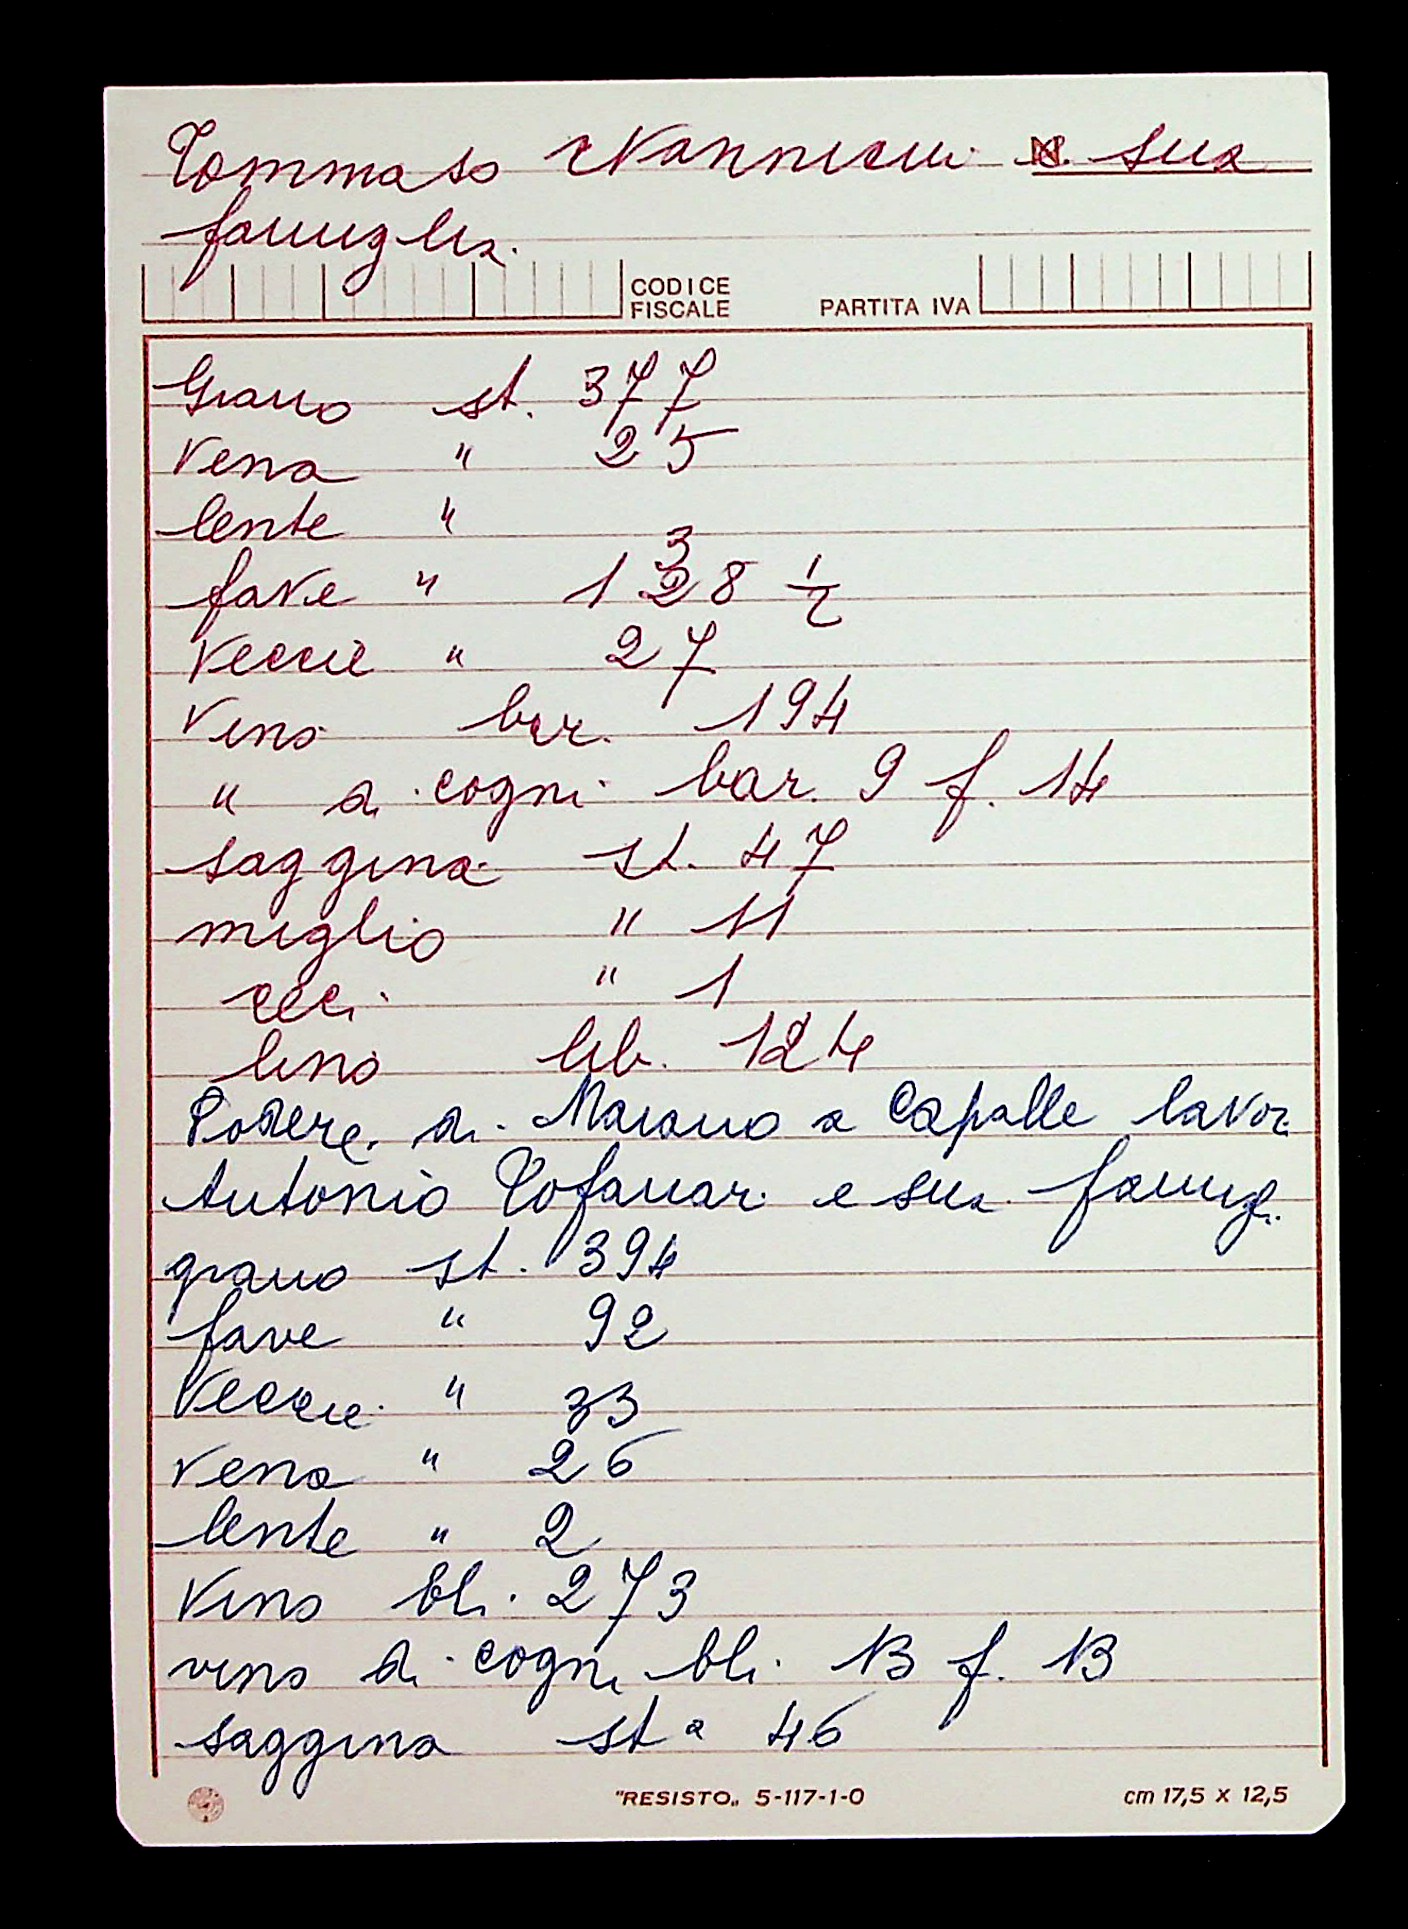 Tommaso Nannicini N. sua
famiglia.
CODICE FISCALE PARTITA IVA
Grano st. 377
Vena " 25
lente "
fave " 138 ½
Veccie " 27
Vino bar. 194
" di cogni bar. 9 f. 14
saggina st. 47
miglio " 11
ceci " 1
lino lib. 124
Podere di Maiano a Capalle lavor.
Antonio Tofanari e sua famig.
grano st. 394
fave " 92
Veccie " 33
Vena " 26
lente " 2
Vino bli. 273
vino di cogni bli. 13 f. 13
saggina sta 46
"RESISTO„ 5-117-1-0 cm 17,5 x 12,5